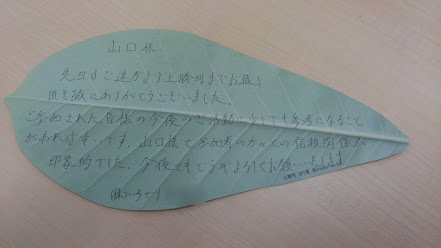 山口様
先日はご遠方より上勝町までお越し
頂き誠にありがとうございました。
ご参加された皆様の今後のご活動に少しでも参考になること
があれば幸いです。山口様と参加者の方々との信頼関係が
印象的でした。今後ともどうかよろしくお願いします
㈱いろどり